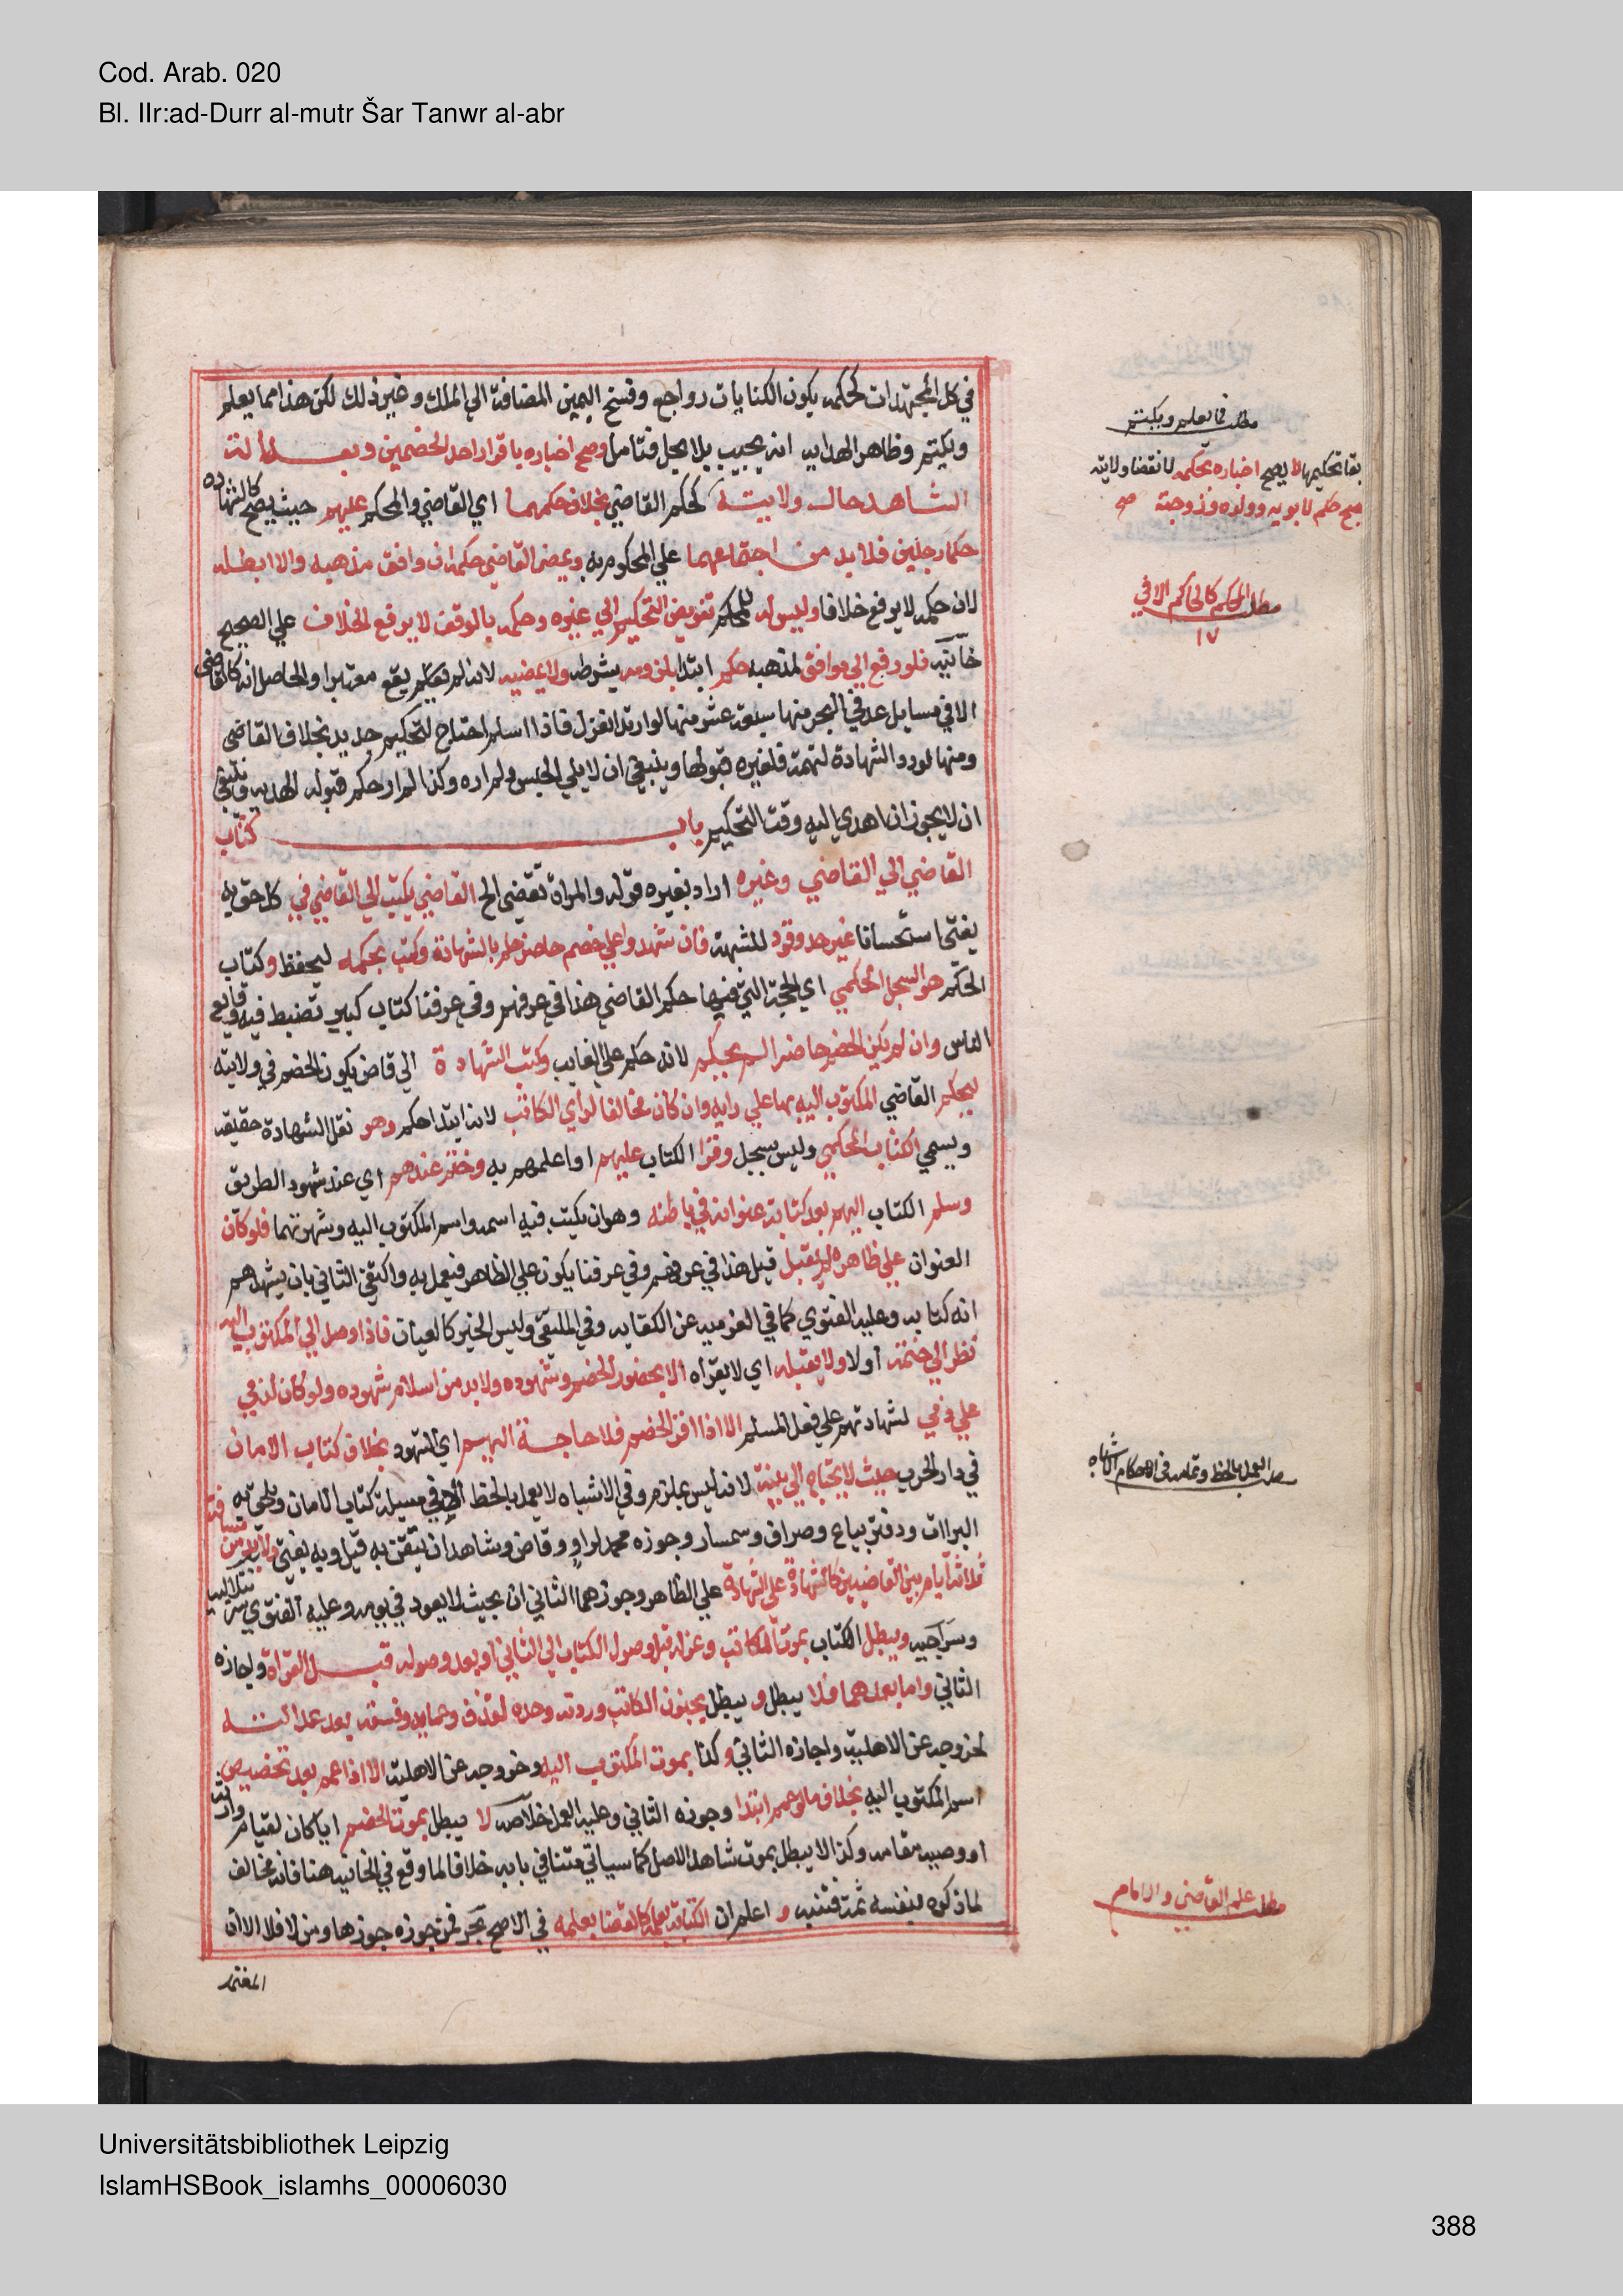 Cod. Arab. 020
Bl. IIr:ad-Durr al-mutr Šar Tanwr al-abr
في كل المجتهدات كحكمه يكون الكنايات رواجع وفسخ اليمين المضافة الي الملك وغير ذلك لكن هذا مما يعلم
ويكتم وظاهر الهدايه انه يجيب بلا يحل فتامل وصح اخباره باقرار احد الخصمين وبعدالة
الشاهد حال ولايته كحكم القاضي بخلاف حكمهما اي القاضي والمحكم عليهم حيث يصح كالشهاده
حكما رجلين فلا بد من اجتماعهما علي المحكوم به ويمضي القاضي حكمه ان وافق مذهبه والا ابطله
لان حكمه لا يرفع خلافا وليس له للمحكم تفويض التحكيم الي غيره وحكمه بالوقف لا يرفع الخلاف علي الصحيح
خانيه فلو رفع الي موافق لمذهبه حكم ابتدا بلزومه بشرطه ولا يمضيه لانه لم يقع معتبرا والحاصل انه كالقاضي
الا في مسايل عد في البحر منها سبعة عشر منها لو ارتد انعزل فاذا اسلم احتاج لتحكيم جديد بخلاف القاضي
ومنها لو رد الشهادة لتهمة فلغيره قبولها وينبغي ان لا يلي الحبس ولم اره وكذا لم ار حكم قبوله الهديه وينبغي
ان لا يجوز ان اهدي اليه وقت التحكيم باب كتاب
القاضي الي القاضي وغيره اراد بغيره قوله والمراة تقضي الخ القاضي يكتب الي القاضي في كل حق به
يفتي استحسانا غير حد وقود للشبهة فان شهدوا علي خصم حاضر حكم بالشهادة وكتب بحكمه ليحفظ وكتاب
الحكم هو السجل الحكمي اي الحجة التي فيها حكم القاضي هذا في عرفهم وفي عرفنا كتاب كبير تضبط فيه وقايع
الناس وان لم يكن الخصم حاضرا لم يحكم لانه حكم علي الغايب وكتب الشهادة الي قاض يكون الخصم في ولايته
ليحكم القاضي المكتوب اليه بها علي رايه وان كان مخالفا لراي الكاتب لانه ابتدا حكم وهو نقل الشهادة حقيقة
ويسمي الكتاب الحكمي وليس بسجل وقرا الكتاب عليهم او اعلمهم به وختم عندهم اي عند شهود الطريق
وسلم الكتاب اليهم بعد كتابة عنوانه في باطنه وهو ان يكتب فيه اسمه واسم المكتوب اليه وشهرتهما فلو كان
العنوان علي ظاهره لم يقبل قيل هذا في عرفهم وفي عرفنا يكون علي الظاهر فيعمل به واكتفي الثاني بان يشهدهم
انه كتابه وعليه الفتوي كما في العزميه عن الكفايه وفي الملتقي وليس الخبر كالعيان فاذا وصل الي المكتوب اليه
نظر الي ختمه اولا ولا يقبله اي لا يقراه الا بحضور الخصم وشهوده ولا بد من اسلام شهوده ولو كان لذمي
علي ذمي لشهادتهم علي فعل المسلم الا اذا اقر الخصم فلا حاجة اليهم اي الشهود بخلاف كتاب الامان
في دار الحرب حيث لا يحتاج الي بينة لانه ليس بملزم وفي الاشباه لا يعمل بالخط الا في مسيلة كتاب الامان ويلحق به
البراات ودفتر بياع وصراف وسمسار وجوزه محمد لراو وقاض وشاهد ان تيقن به قيل وبه يفتي ولا بد من مسافة
ثلاثة ايام بين القاضيين كالشهادة علي الشهادة علي الظاهر وجوزهما الثاني ان بحيث لا يعود في يومه وعليه الفتوي شرنبلاليه
وسراجيه ويبطل الكتاب بموت الكاتب وعزله قبل وصول الكتاب الي الثاني او بعد وصوله قبل القراة واجازه
الثاني واما بعدهما فلا يبطل ويبطل بجنون الكاتب وردته وحده لقذف وعمايه وفسقه بعد عدالته
لخروجه عن الاهلية واجازه الثاني وكذا بموت المكتوب اليه وخروجه عن الاهلية الا اذا عمم بعد تخصيص
اسم المكتوب اليه بخلاف ما لو عمم ابتدا وجوزه الثاني وعليه العمل خلاصه لا يبطل بموت الخصم ايا كان لقيام وارثه
او وصيه مقامه وكذا لا يبطل بموت شاهد الاصل كما سياتي متنا في بابه خلافا لما وقع في الخانيه هنا فانه مخالف
لما ذكره بنفسه ثمة فتنبه و اعلم ان الكتابة بعلمه كالقضا بعلمه في الاصح بحر فمن جوزه جوزها ومن لا فلا الا ان
المعتمد
مطلب فيما يعلم ويكتم
بقا تحكيمها لا يصح اخباره بحكمه لانقضا ولايته
صح حكم لابويه وولده وزوجته صح
مطلب المحكم كالحاكم الا في
١٧
مطلب العمل بالخط وتمامه في احكام الاشباه
مطلب علم القاضي والامام
Universitätsbibliothek Leipzig
IslamHSBook_islamhs_00006030
388